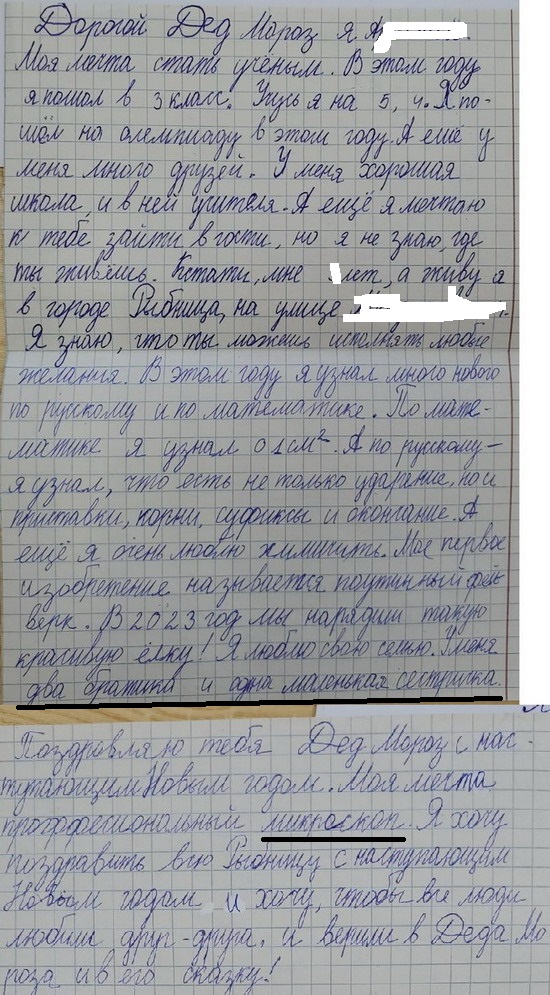 Дорогой Дед Мороз я А
Моя мечта стать учёным. В этом году
я пошол в 3 класс. Учусь я на 5, 4. Я по-
шём на олемпиаду в этом году. А ещё у
меня много друзей. У меня хорошая
школа, и в ней учителя. А ещё я мечтаю
к тебе зайти в гости, но я не знаю, где
ты живёшь. Кстати, мне лет, а живу я
в городе Рыбница, на улице
Я знаю, что ты можешь исполнять любые
желания. В этом году я узнал много нового
по русскому и по математике. По мате-
матике я узнал о 1см². А по русскому –
я узнал, что есть не только ударение, но и
приставки, корни, суфиксы и окончание. А
ещё я очень люблю химичить. Мое первое
изобретение называется паутинный фей-
верк. В 2023 год мы нарядили такую
красивую ёлку! Я люблю свою семью. У меня
два братика и одна маленькая сестричка.
Поздравляю тебя Дед Мороз с нас-
тупающим Новым годом. Моя мечта
профессиональный микроскоп. Я хочу
поздравить всю Рыбницу с наступающим
Новым годом и хочу, чтобы все люди
любили друг-друга, и верили в Деда Мо
роза и в его сказку!